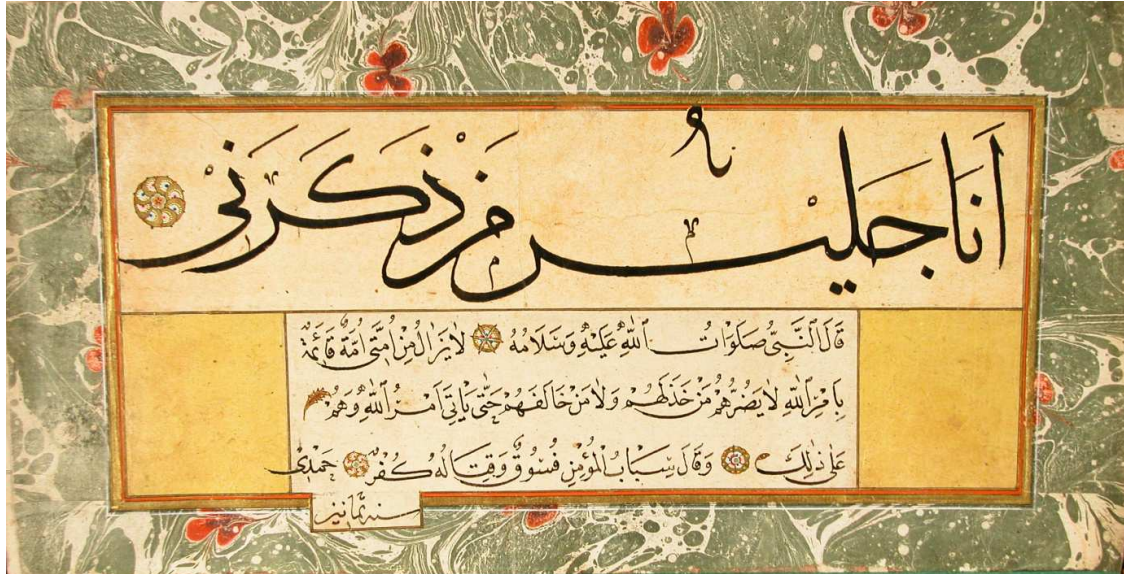 اَنَا جَليْس مَنْ ذَكَرَنى
قَالَ النَّبِىُّ صَلَوَاتُ اللهِ عَلَيْهِ وَسَلَامُهُ لَا يَزَالُ مِنْ اُمَّتى اُمَّةٌ قَائِمَةٌ
بِاَمْرِ اللهِ لَا يَضُرُّهُمْ مَنْ خَذَلَهُمْ وَلَا مَنْ خَالَفَهُمْ حَتّٰى يَاتِىَ اَمْرُ اللهِ وَهُمْ
عَلٰى ذٰلِكَ وَقَالَ سِبَابُ الْمُؤْمِنِ فُسُوقٌ وَقِتَالُهُ كُفْرٌ حميدى
سنه ثمانين